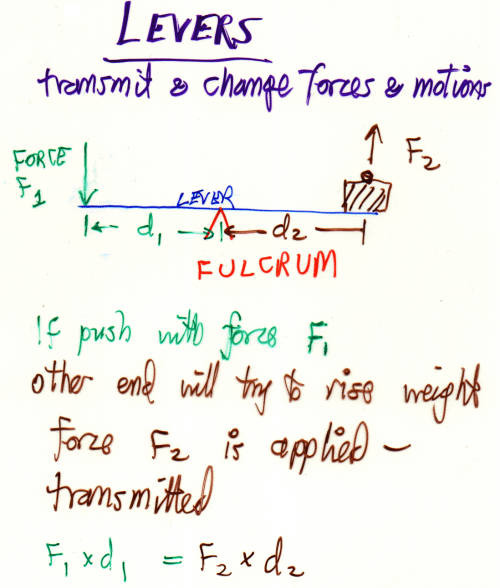 LEVERS
transmit & change forces & motions
FORCE
F1
F2
LEVER
d1
d2
FULCRUM
If push with force F1
other end will try to rise weight
force F2 is applied –
transmitted
F1 × d1 = F2 × d2